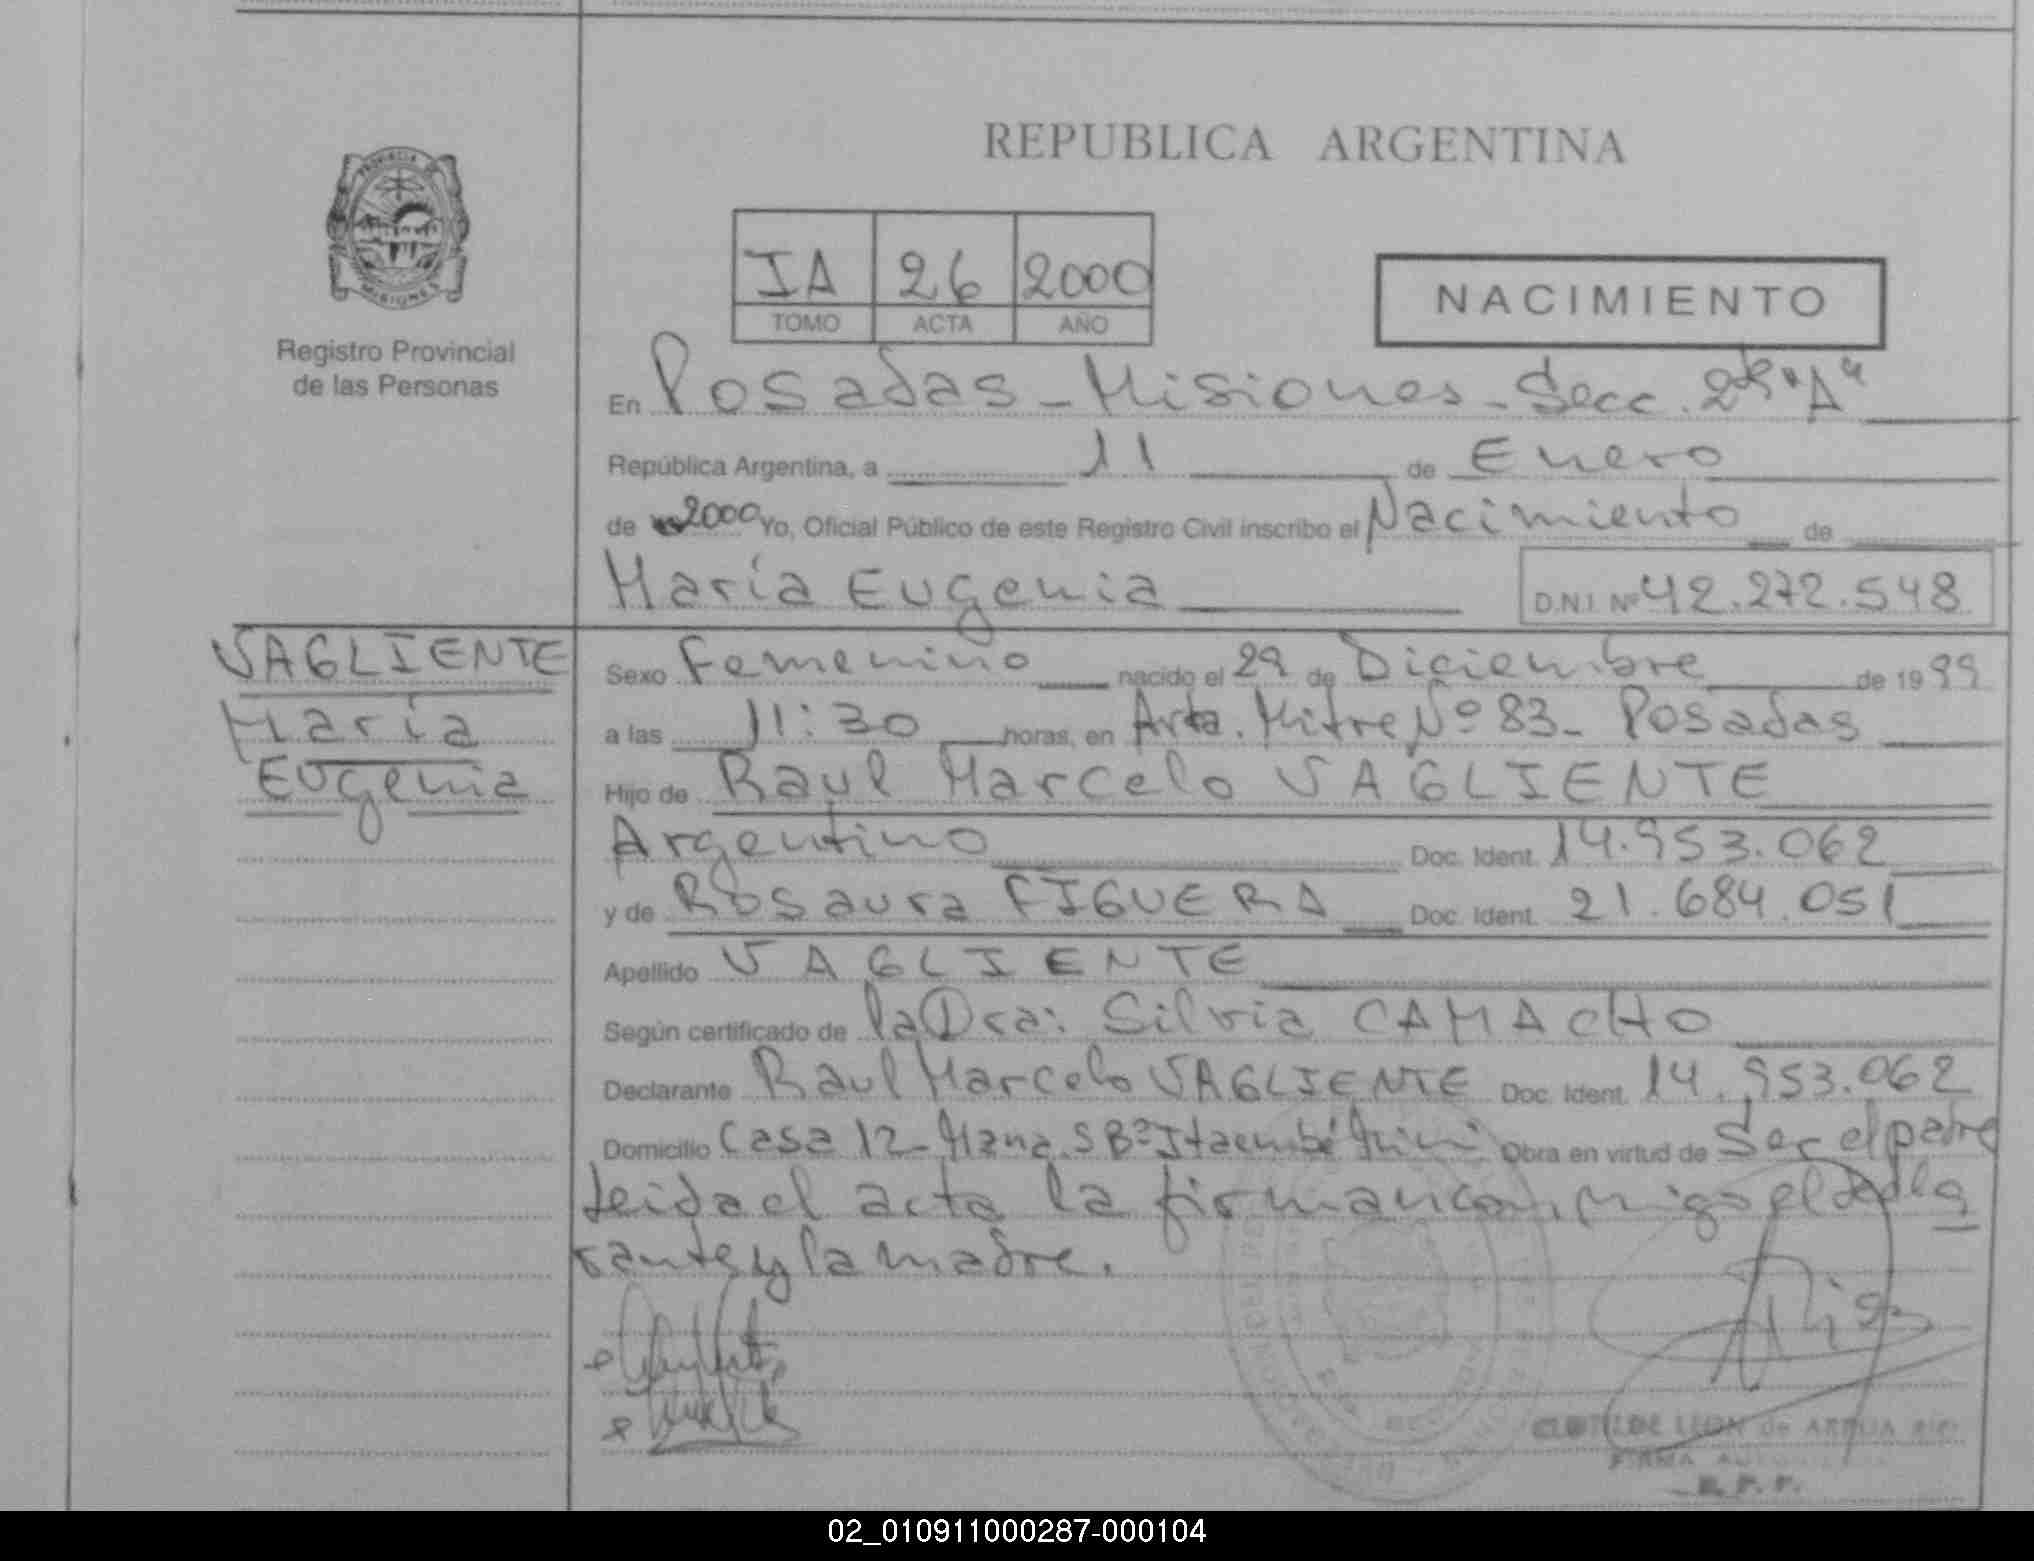 REPUBLICA ARGENTINA
PROVINCIA
MISIONES
Registro Provincial
de las Personas
IA 26 2000
TOMO ACTA AÑO
NACIMIENTO
En Posadas - Misiones - Secc. 2da "A"
República Argentina, a 11 de Enero
de 2000 Yo, Oficial Público de este Registro Civil inscribo el Nacimiento de
María Eugenia D.N.I. Nº 42.272.548
VAGLIENTE
María
Eugenia
Sexo Femenino nacido el 29 de Diciembre de 1999
a las 11:30 horas, en Avda. Mitre Nº 83 - Posadas
Hijo de Raul Marcelo VAGLIENTE
Argentino Doc. Ident. 14.953.062
y de Rosaura FIGUERA Doc. Ident. 21.684.051
Apellido VAGLIENTE
Según certificado de la Dra: Silvia CAMACHO
Declarante Raul Marcelo VAGLIENTE Doc. Ident. 14.953.062
Domicilio Casa 12 - Mzna. 5 Bº Itaembé Miní Obra en virtud de Ser el padre
leida el acta la firman conmigo el decla
rante y la madre.
CLOTILDE LEON de
FIRMA
R.P.P.
02_010911000287-000104